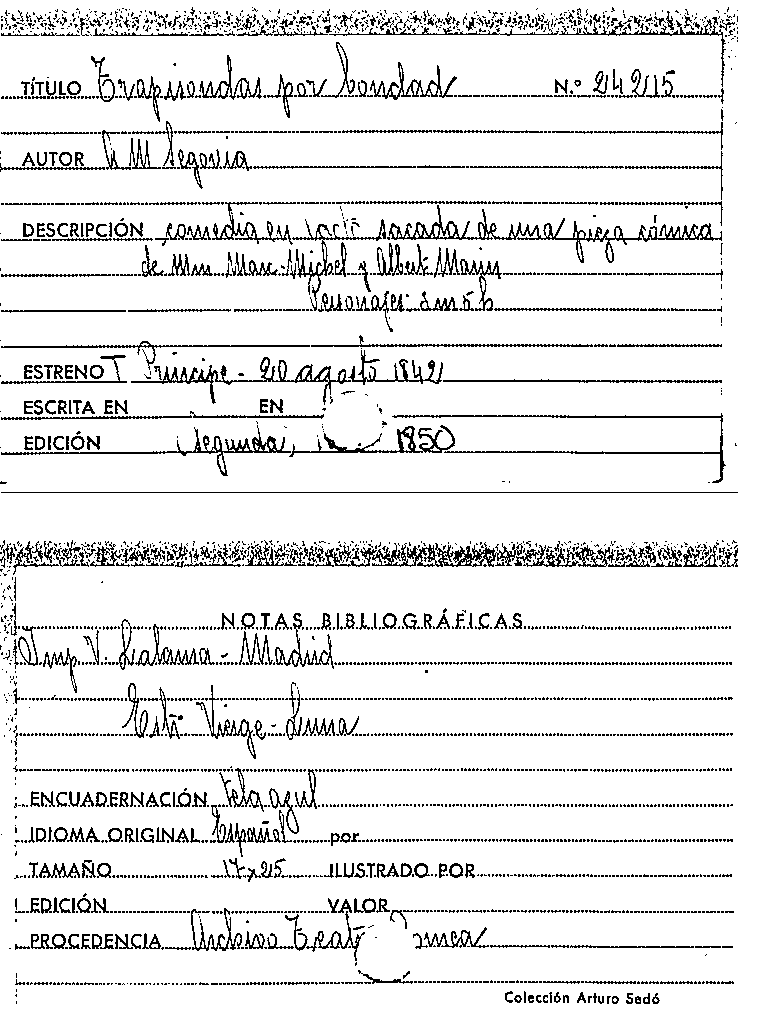 TÍTULO Trapisondas por bondad N.º 24215
AUTOR A M Segovia
DESCRIPCIÓN comedia en 1 acto sacada de una pieza cómica
de Mm Marc-Michel y Albert Maurin
Personajes: 8 m 5 h
ESTRENO T Principe - 20 agosto 1842
ESCRITA EN EN
EDICIÓN (Segunda) 1850
NOTAS BIBLIOGRÁFICAS
Imp. V. Lalama - Madrid
Vierge-Luna
ENCUADERNACIÓN tela azul
IDIOMA ORIGINAL Español por
TAMAÑO 17 x 25 ILUSTRADO POR
EDICIÓN VALOR
PROCEDENCIA Archivo
Colección Arturo Sedó